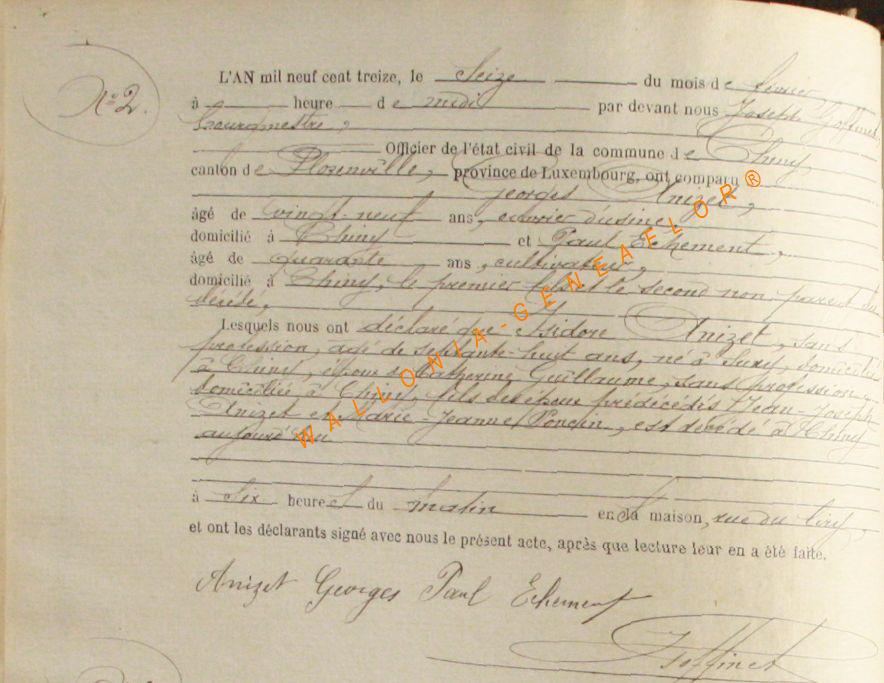 N° 2.
L'AN mil neuf cent treize, le Seize du mois de février
à heure de midi par devant nous Joseph Goffinet,
bourgmestre,
Officier de l'état civil de la commune de Chiny,
canton de Florenville, province de Luxembourg, ont comparu
Georges Anizet,
âgé de vingt-neuf ans, ouvrier d'usine,
domicilié à Chiny et Paul Echement,
âgé de quarante ans, cultivateur,
domicilié à Chiny, le premier fils et le second non parent du
décédé,
Lesquels nous ont déclaré que Isidore Anizet, sans
profession, âgé de septante-huit ans, né à Suxy, domicilié
à Chiny, époux de Catherine Guillaume, sans profession,
domiciliée à Chiny, fils des époux prédécédés Jean-Joseph
Anizet et Marie-Jeanne Poncin, est décédé à Chiny
aujourd'hui
à six heures du matin en sa maison, rue du
et ont les déclarants signé avec nous le présent acte, après que lecture leur en a été faite.
Anizet Georges Paul Echement
J Goffinet
WALLONIA-GENEAFLOR®